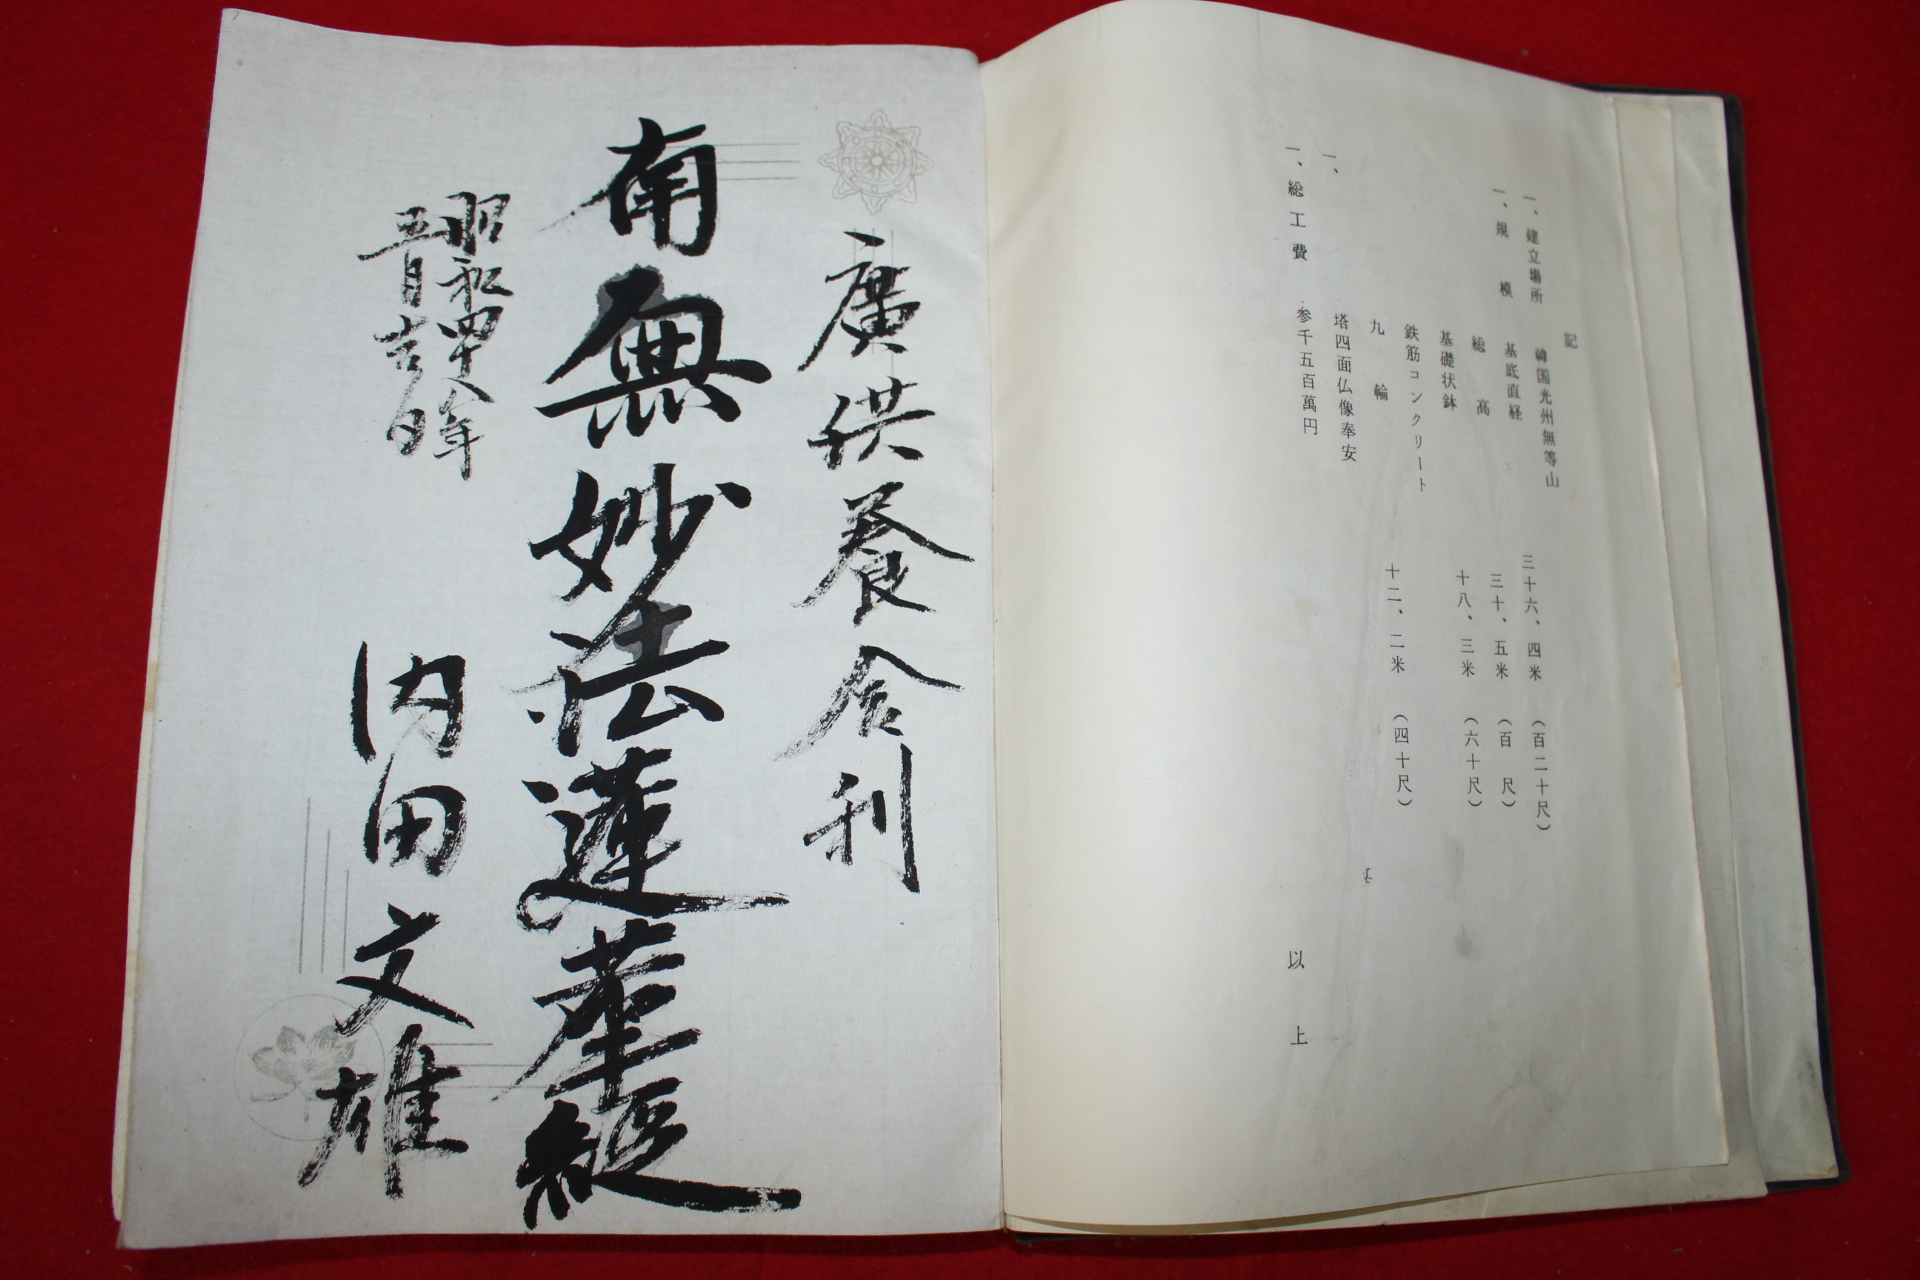 記
一、建立場所 韓国光州無等山
一、規模 基底直経 三十六、四米 (百二十尺)
総高 三十、五米 (百尺)
基礎状鉢 十八、三米 (六十尺)
鉄筋コンクリート
九輪 十二、二米 (四十尺)
一、 塔四面仏像奉安
一、総工費 参千五百萬円
以上
廣供養舎利
南無妙法蓮華経
昭和四十八年
五月吉日
内田文雄